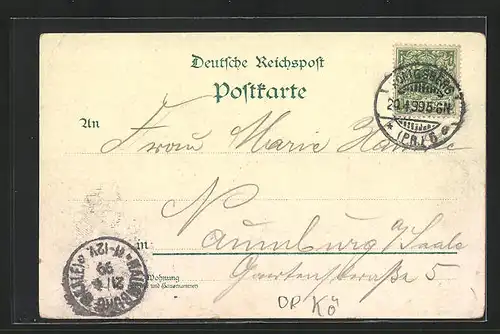 Deutsche Reichspost
Postkarte
KÖNIGSBERG
20.4.99.5-6N.
* (PR.) 5 e
An
Frau Marie
in: Naumburg a/Saale
Wohnung
Gartenstraße 5.
NAUMBURG (SAALE)
21/4
99
11-12V.
DP Kö